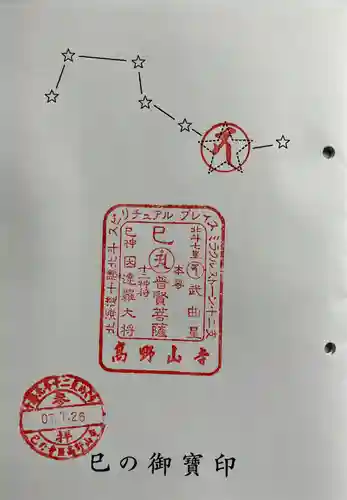 スピリチュアル プレイス
ミラクルストーン十二支
北斗七星
武曲星
本尊
巳
普賢菩薩
十二神将
巳神 因達羅大将
高野山寺
参
07.1.26
拝
巳の御寶印